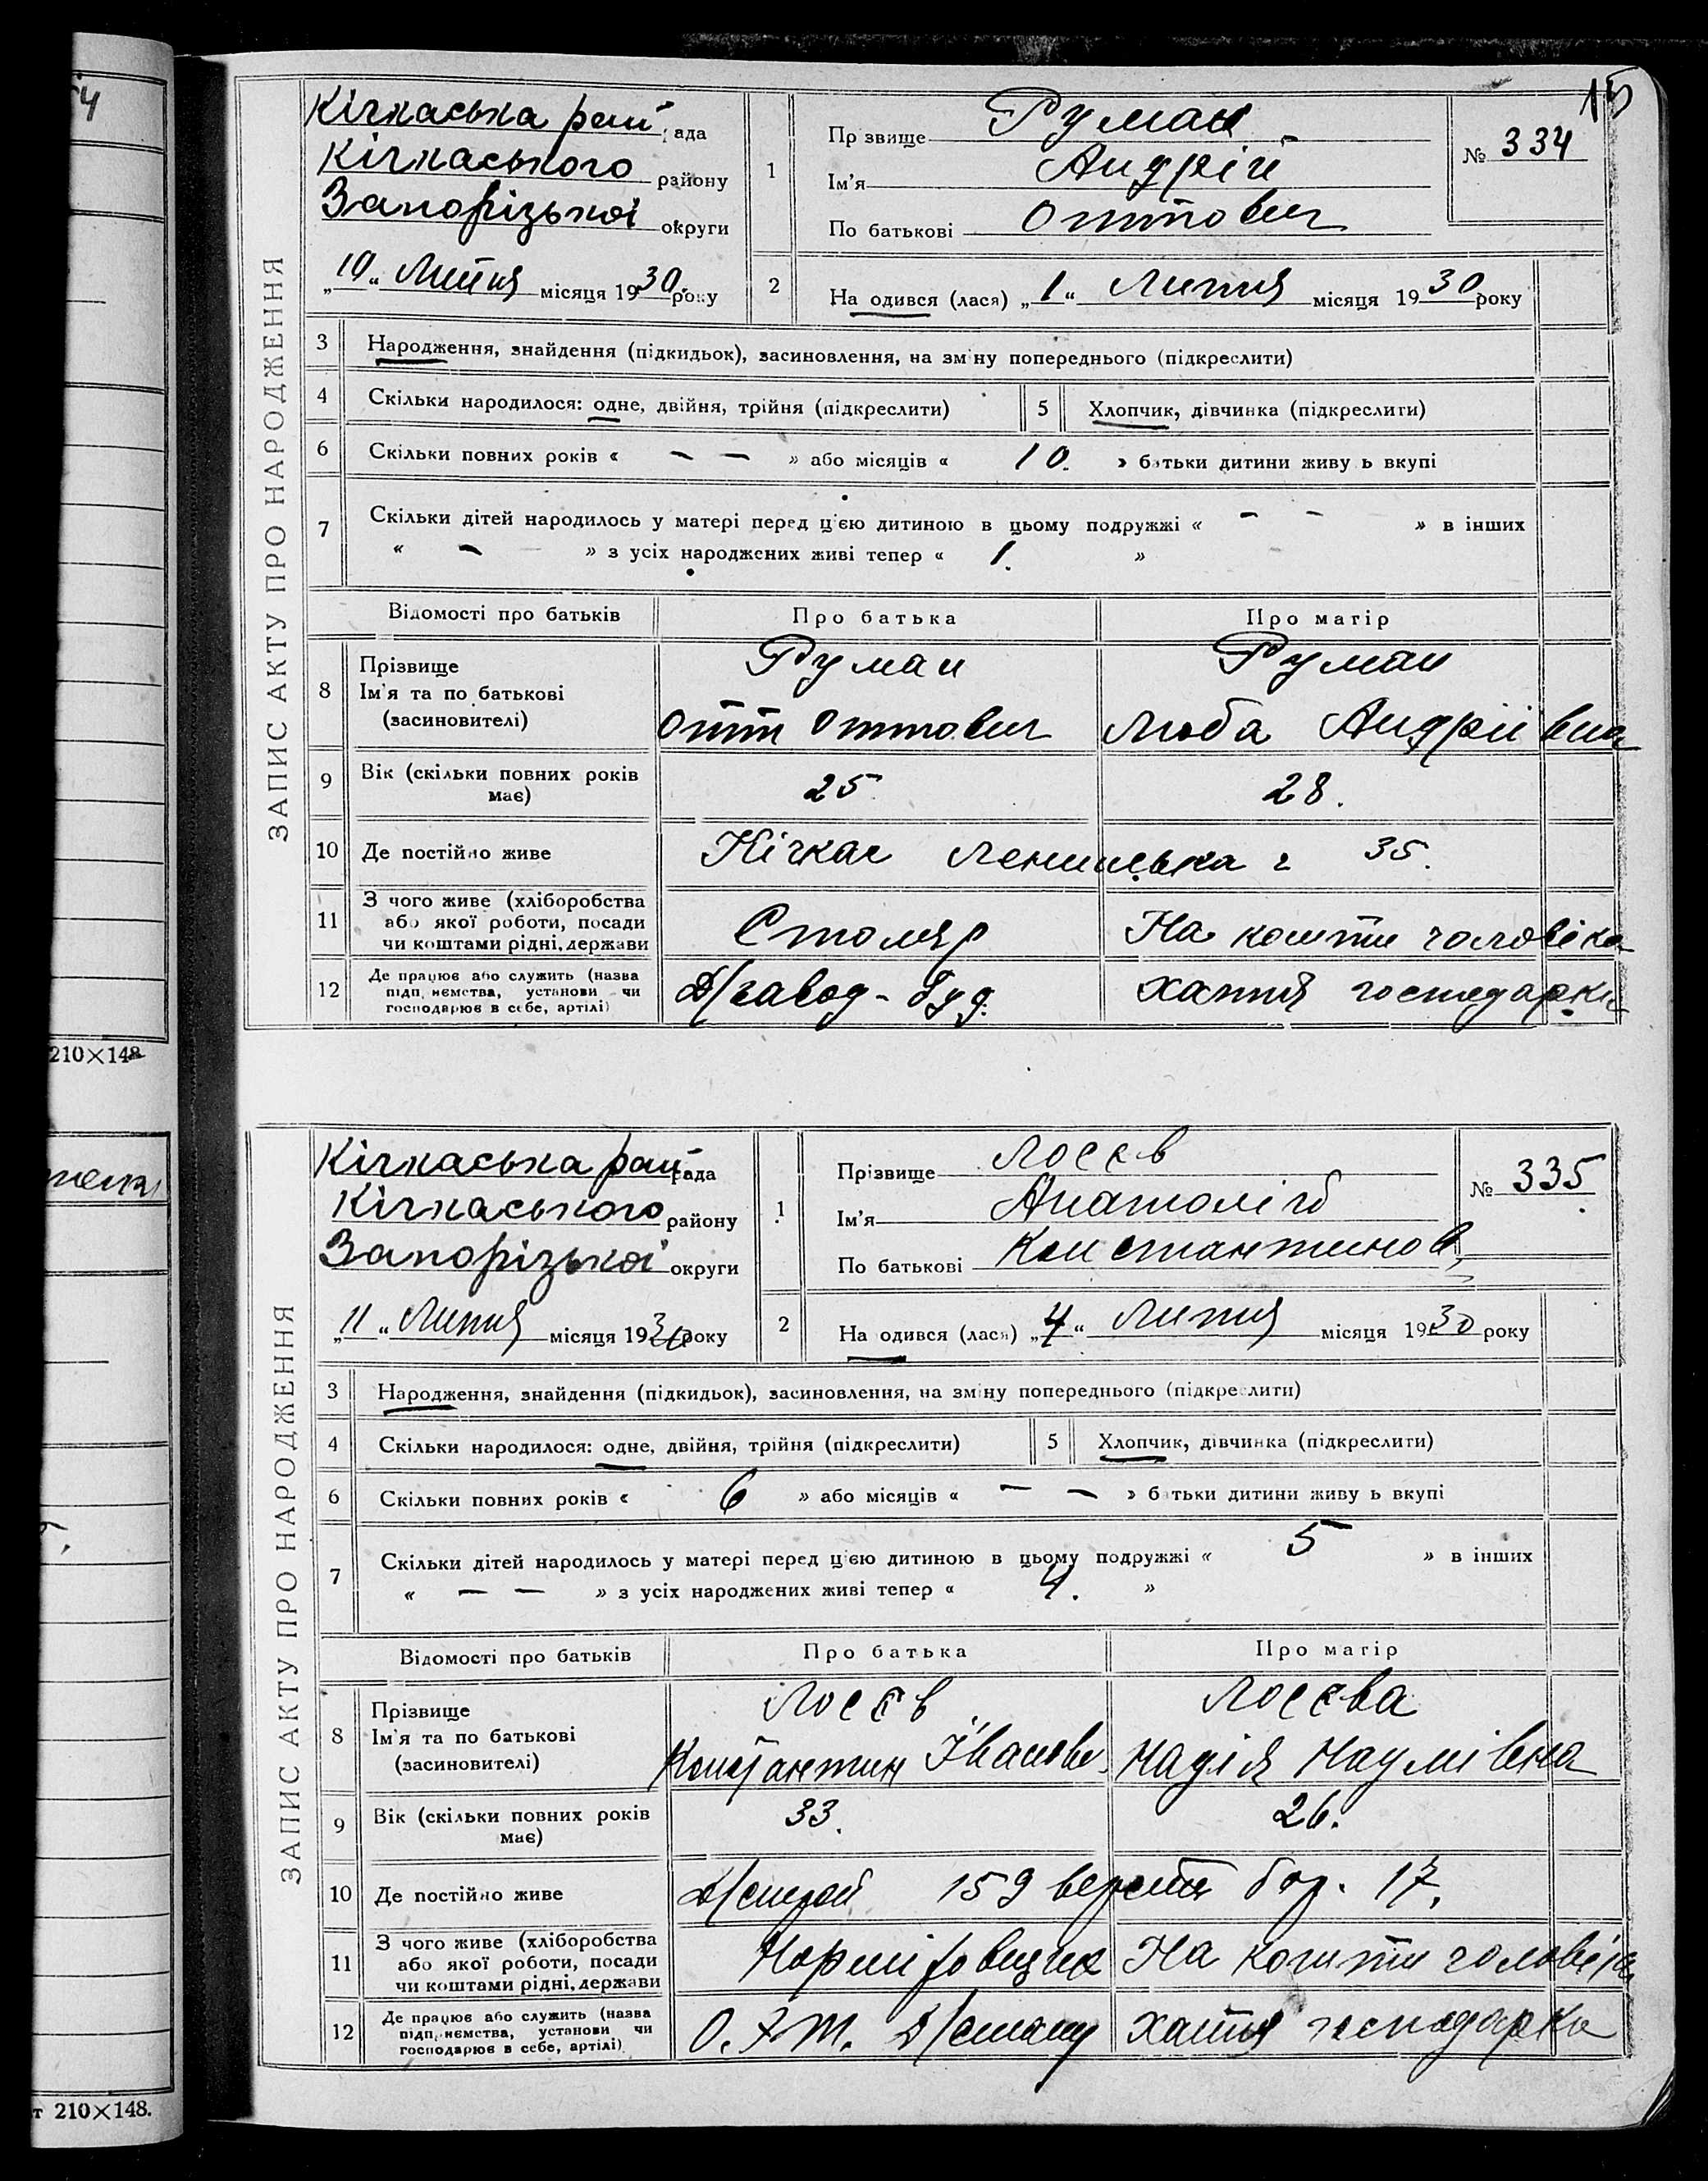 15
ЗАПИС АКТУ ПРО НАРОДЖЕННЯ
Кічкаська рай рада
Кічкаського району
Запорізької округи
„10“ Липня місяця 1930 року
1
Прізвище Руман
Ім’я Андрій
По батькові Оттович
№ 334
2
На одився (лася) „1“ Липня місяця 1930 року
3 Народження, знайдення (підкидьок), засиновлення, на зміну попереднього (підкреслити)
4 Скільки народилося: одне, двійня, трійня (підкреслити)
5 Хлопчик, дівчинка (підкреслити)
6 Скільки повних років « — — » або місяців « 10. » батьки дитини живуть вкупі
7 Скільки дітей народилось у матері перед цією дитиною в цьому подружжі « — — » в інших
« — » з усіх народжених живі тепер « 1. »
Відомості про батьків Про батька Про матір
8 Прізвище Руман Руман
Ім’я та по батькові
(засиновителі) Отто Оттович Люба Андріївна
9 Вік (скільки повних років має) 25 28.
10 Де постійно живе Кічкас Ленинська 2 35.
11 З чого живе (хліборобства
або якої роботи, посади
чи коштами рідні, держави Столяр На кошти чоловіка
12 Де працює або служить (назва
підприємства, установи чи
господарює в себе, артілі) Д/завод-буд. хатня господарка
210×148
ЗАПИС АКТУ ПРО НАРОДЖЕННЯ
Кічкаська рай рада
Кічкаського району
Запорізької округи
„11“ Липня місяця 1930 року
1
Прізвище Лосєв
Ім’я Анатолій
По батькові Константинов
№ 335
2
На одився (лася) „4“ Липня місяця 1930 року
3 Народження, знайдення (підкидьок), засиновлення, на зміну попереднього (підкреслити)
4 Скільки народилося: одне, двійня, трійня (підкреслити)
5 Хлопчик, дівчинка (підкреслити)
6 Скільки повних років « 6 » або місяців « — — » батьки дитини живуть вкупі
7 Скільки дітей народилось у матері перед цією дитиною в цьому подружжі « 5 » в інших
« — — » з усіх народжених живі тепер « 4. »
Відомості про батьків Про батька Про матір
8 Прізвище Лосєв Лосєва
Ім’я та по батькові
(засиновителі) Константин Іванов. Надія Наумівна
9 Вік (скільки повних років має) 33. 26.
10 Де постійно живе Д/строй 159 верста бар. 17.
11 З чого живе (хліборобства
або якої роботи, посади
чи коштами рідні, держави Норміровщик На кошти чоловіка
12 Де працює або служить (назва
підприємства, установи чи
господарює в себе, артілі) хатня господарка
т 210×148.